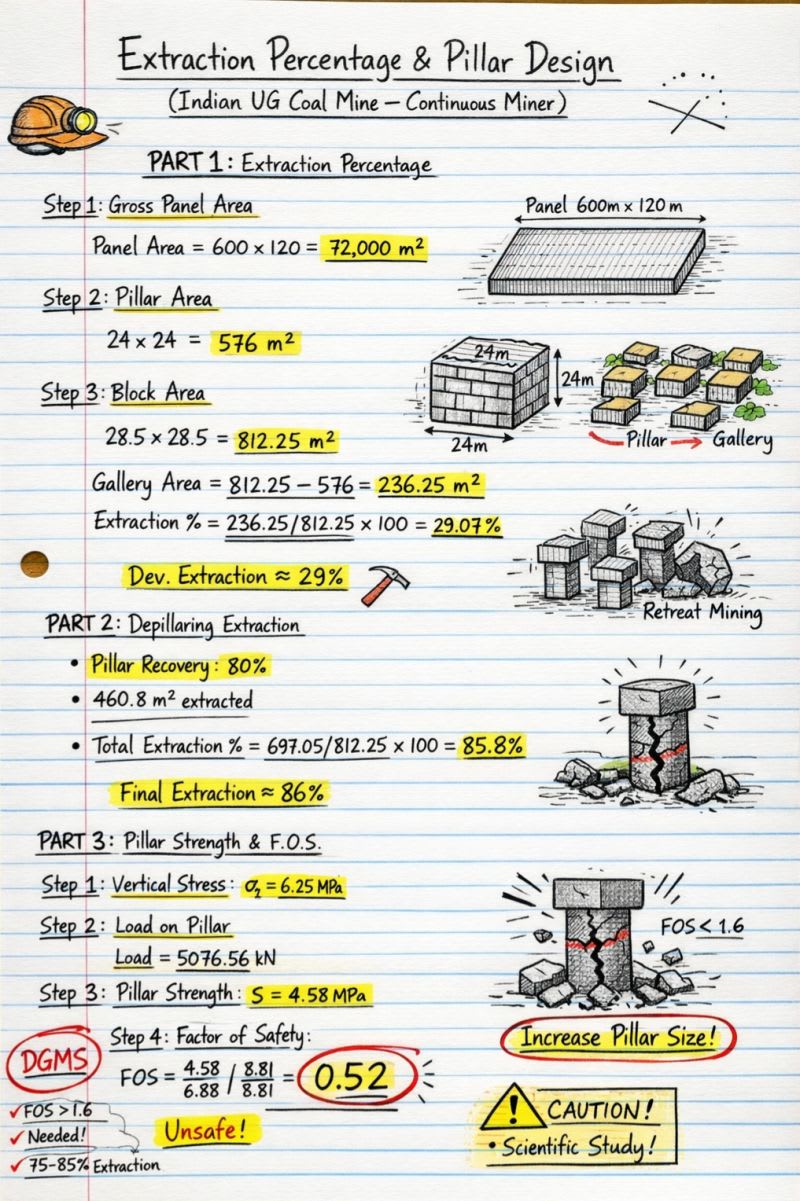 Extraction Percentage & Pillar Design
(Indian UG Coal Mine – Continuous Miner)
PART 1: Extraction Percentage
Step 1: Gross Panel Area
Panel 600m x 120 m
Panel Area = 600 x 120 = 72,000 m²
Step 2: Pillar Area
24 x 24 = 576 m²
24m
24m
24m
Step 3: Block Area
28.5 x 28.5 = 812.25 m²
Pillar → Gallery
Gallery Area = 812.25 – 576 = 236.25 m²
Extraction % = 236.25/812.25 x 100 = 29.07%
Dev. Extraction ≈ 29%
Retreat Mining
PART 2: Depillaring Extraction
• Pillar Recovery: 80%
• 460.8 m² extracted
• Total Extraction % = 697.05/812.25 x 100 = 85.8%
Final Extraction ≈ 86%
PART 3: Pillar Strength & F.O.S.
Step 1: Vertical Stress: σ₂ = 6.25 MPa
Step 2: Load on Pillar
Load = 5076.56 kN
FOS < 1.6
Step 3: Pillar Strength: S = 4.58 MPa
Increase Pillar Size!
Step 4: Factor of Safety:
DGMS
FOS = 4.58/6.88 / 8.81/8.81 = 0.52
✓ FOS > 1.6
✓ Needed!
✓ 75-85% Extraction
Unsafe!
CAUTION!
• Scientific Study!